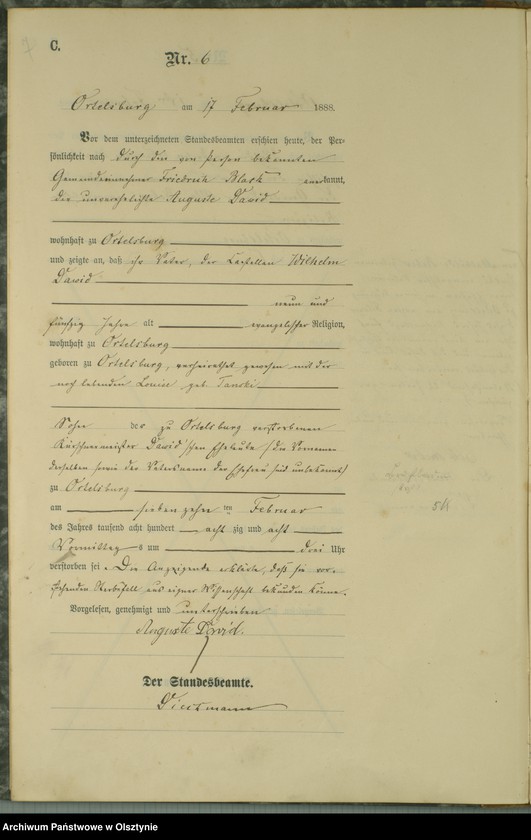 C.
Nr. 6
Ortelsburg am 17 Februar 1888.
Vor dem unterzeichneten Standesbeamten erschien heute, der Per-
sönlichkeit nach durch den von Person bekannten
Gemeindeeinnehmer Friedrich Black anerkannt,
die unverehelichte Auguste David
wohnhaft zu Ortelsburg
und zeigte an, daß ihr Vater, der Wilhelm
David
neun und
fünfzig Jahre alt evangelischer Religion,
wohnhaft zu Ortelsburg
geboren zu Ortelsburg, verheirathet gewesen mit der
noch lebenden Louise geb Tanski
Sohn der zu Ortelsburg verstorbenen
Kürschnermeister David'schen Eheleute (die Vornamen
derselben sowie der Vatersname der Ehefrau sind unbekannt)
zu Ortelsburg
am siebenzehnten Februar
des Jahres tausend acht hundert acht zig und acht
Vormittags um drei Uhr
verstorben sei. Die Anzeigende erklärte, daß sie vor-
stehenden Sterbefall aus eigner Wissenschaft bekunden könne.
Vorgelesen, genehmigt und unterschrieben
Auguste David.
Der Standesbeamte.
Archiwum Państwowe w Olsztynie